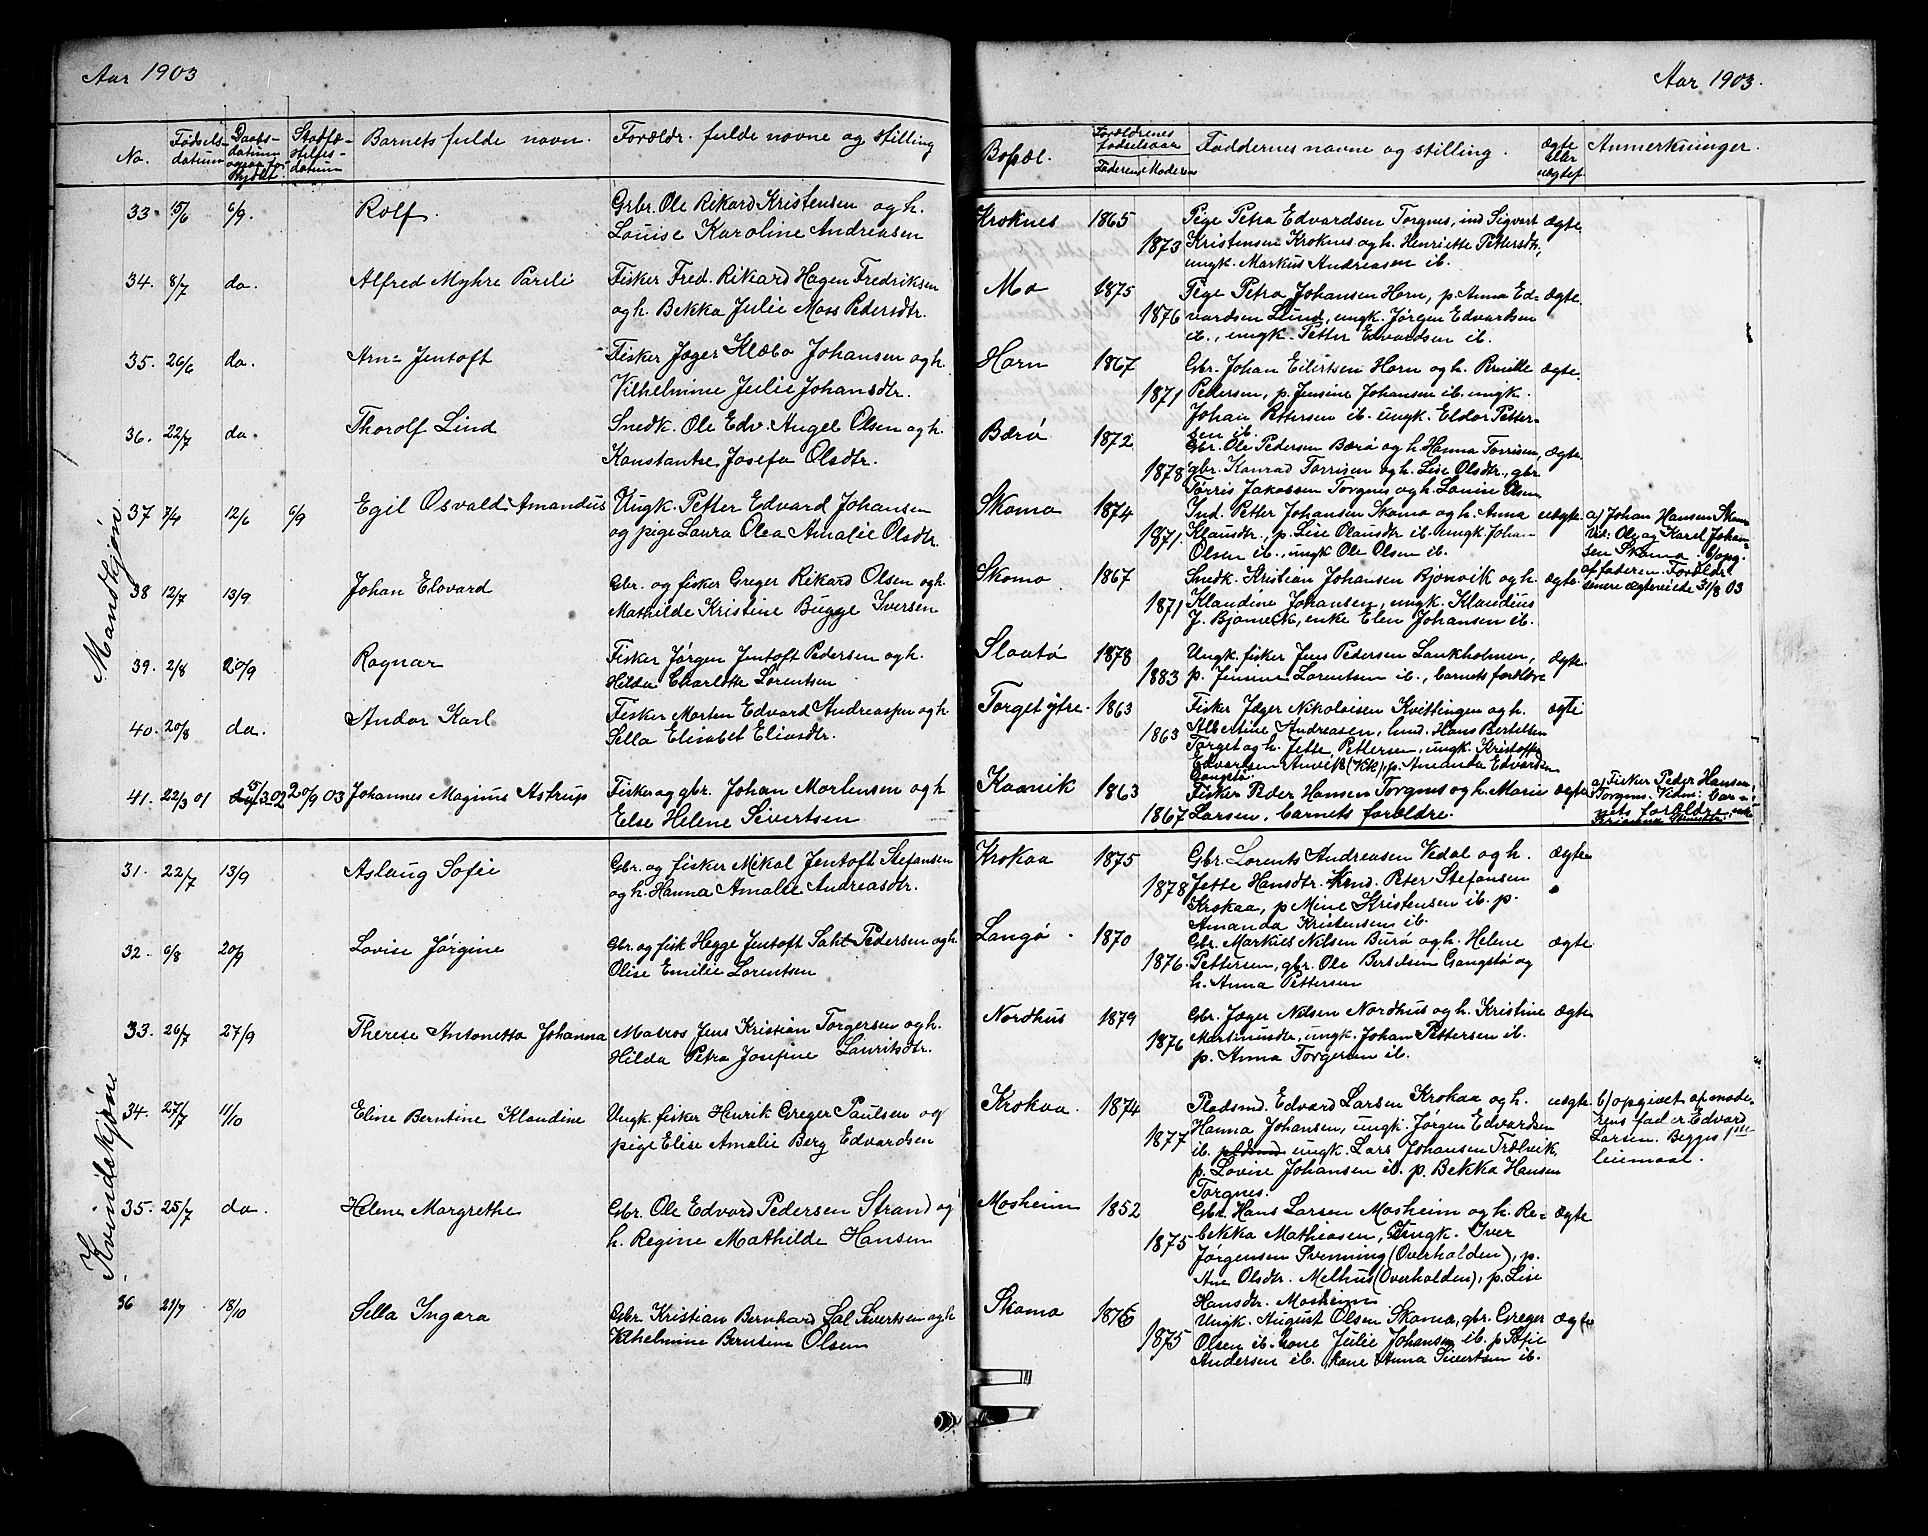 Aar 1903
No.
Fødsels-
datum
Daabs-
datum
Stadfæ-
stelses-
datum
Barnets fulde navn.
Forældr. fulde navne og stilling
Mandkjøn.
33. 15/6 6/9. Rolf. Grbr. Ole Rikard Kristensen og h.
Louise Karoline Andreasen
34. 8/7 do. Alfred Myhre Pareli Fisker Fred. Rikard Hagen Fredriksen
og h. Bekka Julie Moss Pedersdtr.
35. 26/6 do. Arn= Jentoft Fisker Jæger Klæbo Johansen og h.
Vilhelmine Julie Johansdtr.
36. 22/7 do. Thorolf Lind Snedk. Ole Edv. Angel Olsen og h.
Konstantse Josefa Olsdtr.
37 7/4 12/6 6/9 Egil Osvald Amandus Ungk. Petter Edvard Johansen
og pige Laura Olea Amalie Olsdtr.
38 12/7 13/9 Johan Edvard Gbr. og fisker Greger Rikard Olsen og h.
Mathilde Kristine Bugge Iversen
39. 2/8 20/9 Ragnar Fisker Jørgen Jentoft Pedersen og h.
Hilda Charlotte Lorentsen
40. 20/8 do. Andor Karl Fisker Morten Edvard Andreassen og h.
Sella Elisabet Eliasdtr.
41. 22/3 01 15/3 02 20/9 03 Johannes Magnus Astrup Fisker og gbr. Johan Mortensen og h
Else Helene Sivertsen
Kvindekjøn
31. 22/7 13/9 Aslaug Sofie Gbr. og fisker Mikal Jentoft Stefansen
og h. Hanna Amalie Andreasdtr.
32. 6/8 20/9 Lovise Jørgine Gbr. og fisk Hegge Jentoft Salt Pedersen og h.
Olise Emilie Lorentsen
33. 26/7 27/9 Therese Antonetta Johanna Matros Jens Kristian Torgersen og h.
Hilda Petra Josefine Lauritsdtr.
34. 27/7 11/10 Eline Berntine Klaudine Ungk. fisker Henrik Greger Paulsen og
pige Elise Amalie Berg Edvardsen
35. 25/7 do. Helene Margrethe Gbr. Ole Edvard Pedersen Strand og
h. Regine Mathilde Hansen
36 21/7 18/10 Sella Ingara Gbr. Kristian Bernhard Sal Sivertsen og h
Vilhelmine Berntine Olsen
Aar 1903.
Bopæl.
Forældrenes
fødselsaar
Faderens Moderens
Faddernes navne og stilling.
ægte
eller
uægtef
Anmerkninger.
Kroknes 1865 Pige Petra Edvardsen Torgnes, ind Sigvart ægte
1873 Kristensen Kroknes og h. Henriette Pettersdtr,
ungk. Markus Andreasen ib.
Mo 1875 Pige Petra Johansen Horn, p. Anna Ed= ægte.
1876 vardsen Lund, ungk. Jørgen Edvardsen
ib., ungk. Petter Edvardsen ib.
Horn 1867 Gbr. Johan Eilertsen Horn og h. Pernille ægte.
1871 Pedersen, p. Jensine Johansen ib. ungk.
Johan Pettersen ib. ungk. Eldor Petter-
sen ib.
Bærø 1872 Gbr. Ole Pedersen Bærø og h. Hanna Torrisen, ægte.
1878 gbr. Konrad Torrisen og h. Lise Olsdtr., gbr.
Tørris Jakobsen Torgnes og h. Lovise Olsen
Skomo 1874 Ind. Petter Johansen Skomo og h. Anna uægte. a) Johan Hansen Skom
1871 Klausdtr., p. Lise Olausdtr. ib. ungk. Johan Vid: Ole og Karel Johan-
Olsen ib., ungk Ole Olsen ib. sen Skomo. b) opg.
af faderen. Forældre
senere ægteviede 31/8 03
Skomo 1867 Snedk. Kristian Johansen Bjørnvik og h. ægte
1871 Klaudine Johansen, ungk. Klaudius
J. Bjørnvik, enke Elen Johansen ib.
Slaatø 1878 Ungk. fisker Jens Pedersen Lankholmen, ægte.
1883 p. Jensine Lorentsen ib., barnets forældre
Torget ytre. 1863 Fisker Jæger Nikolaisen Kvittingen og h. ægte
1863 Albertine Andreasen, lmd. Hans Bertelsen
Torget og h. Jette Pettersen, ungk. Kristoffer
Edvartsen Anvik (Vik), p. Amanda Edvardsen
Gangstø.
Kaarvik 1863 Fisker Peder Hansen Torgnes og h. Marie ægte a) Fisker Peder Hansen,
1867 Larsen, barnets forældre. Torgnes. Vidn: bar-
nets forældre
Krokaa 1875 Gbr. Lorents Andreasen Vedal og h. ægte
1878 Jette Hansdtr. Kmd. Peter Stefansen
Krokaa, p Mine Kristensen ib. p.
Amanda Kristensen ib.
Langø. 1870 Gbr. Markus Nilsen Burø og h. Helene ægte
1876. Pettersen, gbr. Ole Bertelsen Gangstø og
h. Anna Pettersen
Nordhus 1879 Gbr. Jæger Nilsen Nordhus og h. Kristine ægte
1876 Martinusdtr, ungk. Johan Pettersen ib.
p. Anna Torgersen ib.
Krokaa. 1874 Pladsmd. Edvard Larsen Krokaa og h. uægte b) opgivet af mode-
1877 Hanna Johansen, ungk. Jørgen Edvardsen rens fad er Edvard
ib. ungk. Lars Johansen Trælvik, Larsen. Begges 1ste
p. Lovise Johansen ib. p. Bekka Hansen leiemaal.
Torgnes.
Mosheim 1852 Gbr. Hans Larsen Mosheim og h. Re= ægte
1875 bekka Mathiasen, Ungk. Iver
Jørgensen Svenning (Overhalden), p.
Ane Olsdtr. Melhus (Overhalden), p. Lise
Hansdtr. Mosheim
Skomo 1876 Ungk. August Olsen Skomo, gbr. Greger ægte
1875 Olsen ib. kone Julie Johansen ib. p Sofie
Andersen ib. kone Anna Sivertsen ib.